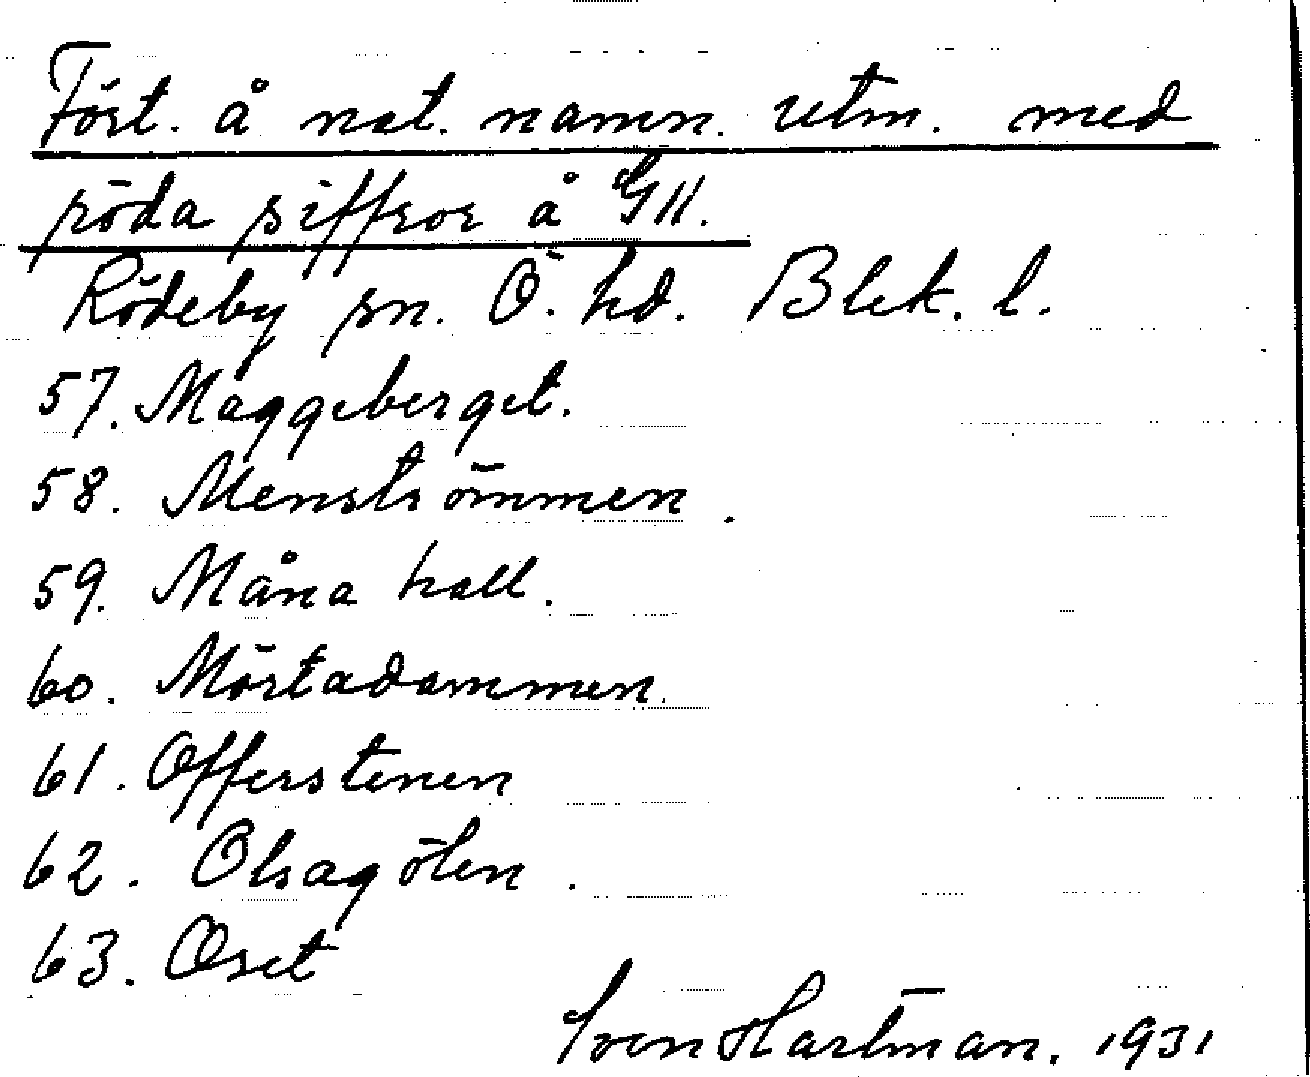 Fört. å nat. namn. utm. med
röda siffror å G 11.
Rödeby sn. Ö. hd. Blek. l.
57. Maggeberget.
58. Menströmmen.
59. Måna hall.
60. Mörtadammen.
61. Offerstenen
62. Olsagölen.
63. Oset
Sven Hartman. 1931